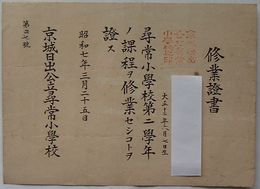 修業證書
大正十三年八月七日生
尋常小學校第二學年
ノ課程ヲ修業セシコトヲ
證ス
昭和七年三月二十五日
京城日出公立尋常小學校